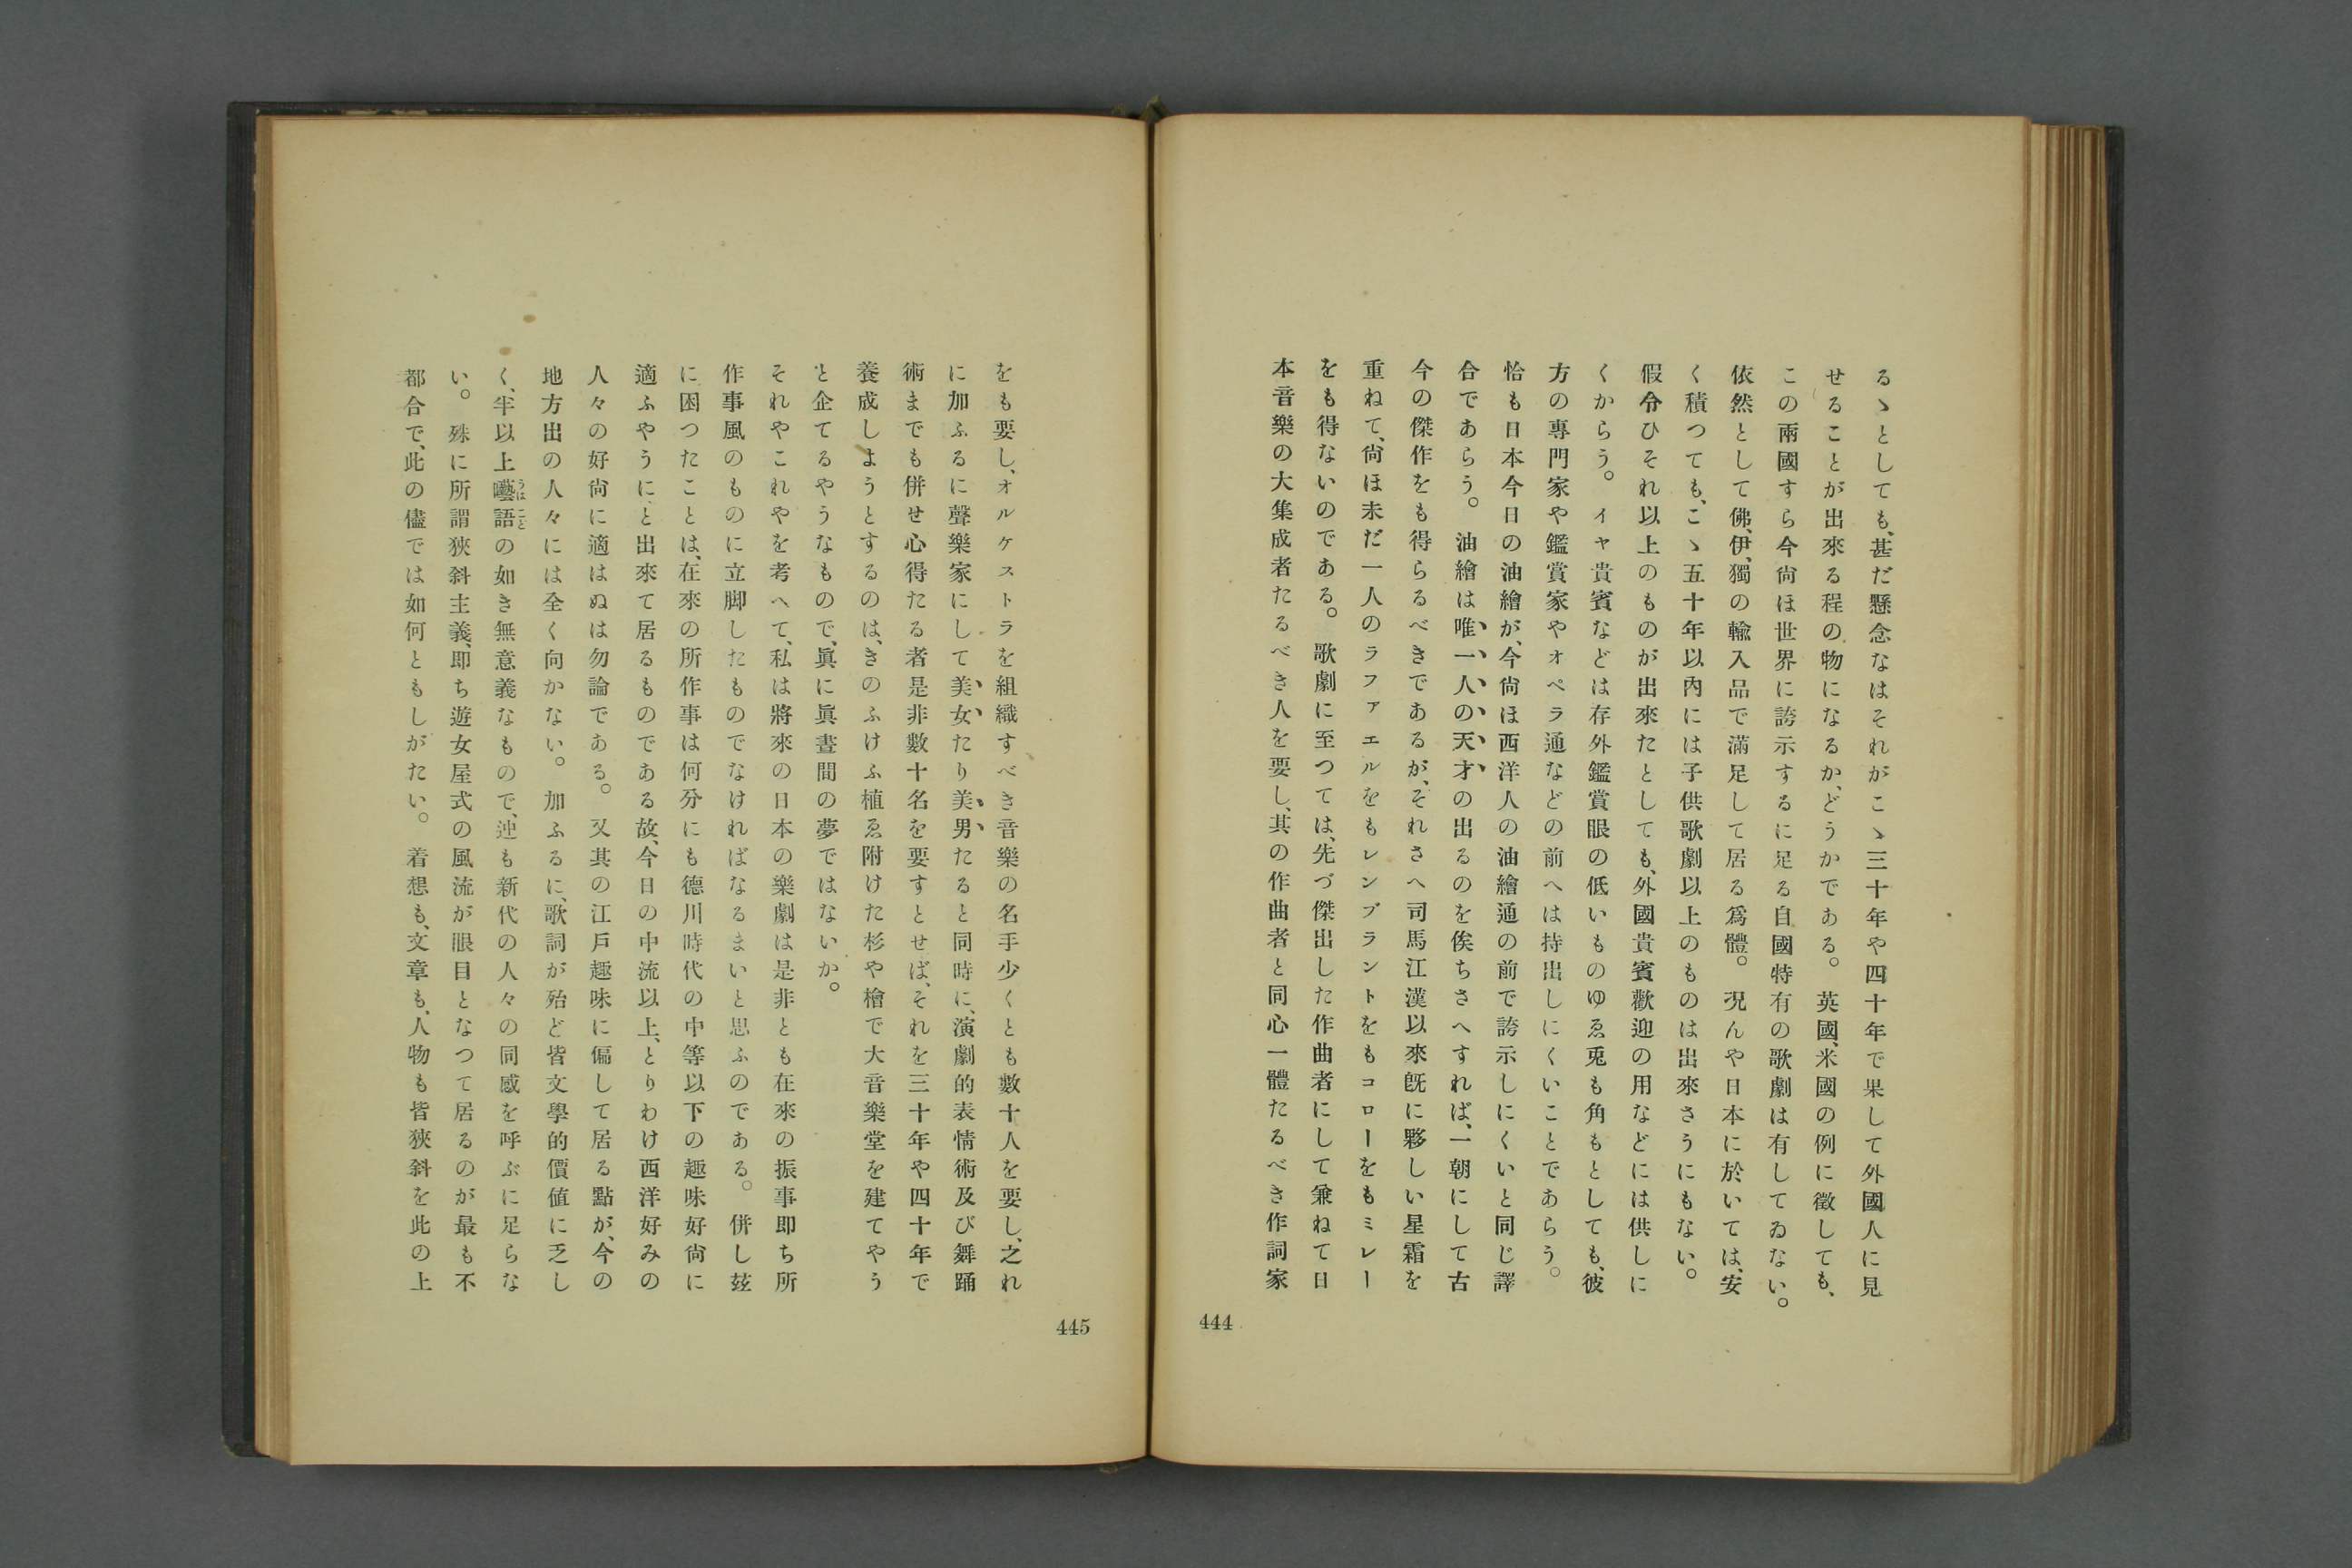 るゝとしても、甚だ懸念なはそれがこゝ三十年や四十年で果して外國人に見
せることが出來る程の物になるか、どうかである。英國、米國の例に徵しても、
この兩國すら今尙ほ世界に誇示するに足る自國特有の歌劇は有してゐない。
依然として佛、伊、獨の輸入品で滿足して居る爲體。況んや日本に於いては、安
く積つても、こゝ五十年以內には子供歌劇以上のものは出來さうにもない。
假令ひそれ以上のものが出來たとしても、外國貴賓歡迎の用などには供しに
くからう。イヤ貴賓などは存外鑑賞眼の低いものゆゑ兎も角もとしても、彼
方の專門家や鑑賞家やオペラ通などの前へは持出しにくいことであらう。
恰も日本今日の油繪が、今尙ほ西洋人の油繪通の前で誇示しにくいと同じ譯
合であらう。油繪は唯一人の天才の出るのを俟ちさへすれば、一朝にして古
今の傑作をも得らるべきであるが、それさへ司馬江漢以來既に夥しい星霜を
重ねて、尙ほ未だ一人のラファエルをもレンブラントをもコローをもミレー
をも得ないのである。歌劇に至つては、先づ傑出した作曲者にして兼ねて日
本音樂の大集成者たるべき人を要し、其の作曲者と同心一體たるべき作詞家
444
をも要し、オルケストラを組織すべき音樂の名手少くとも數十人を要し、之れ
に加ふるに聲樂家にして美女たり美男たると同時に、演劇的表情術及び舞踊
術までも併せ心得たる者是非數十名を要すとせば、それを三十年や四十年で
養成しようとするのは、きのふけふ植ゑ附けた杉や檜で大音樂堂を建てやう
と企てるやうなもので、眞に眞晝間の夢ではないか。
それやこれやを考へて、私は將來の日本の樂劇は是非とも在來の振事即ち所
作事風のものに立脚したものでなければなるまいと思ふのである。併し玆
に困つたことは、在來の所作事は何分にも德川時代の中等以下の趣味好尙に
適ふやうに出來て居るものである故、今日の中流以上、とりわけ西洋好みの
人々の好尙に適はぬは勿論である。又其の江戶趣味に偏して居る點が、今の
地方出の人々には全く向かない。加ふるに、歌詞が殆ど皆文學的價値に乏し
く、半以上囈語うはことの如き無意義なもので、迚も新代の人々の同感を呼ぶに足らな
い。殊に所謂狹斜主義、即ち遊女屋式の風流が眼目となつて居るのが最も不
都合で、此の儘では如何ともしがたい。着想も、文章も、人物も皆狹斜を此の上
445